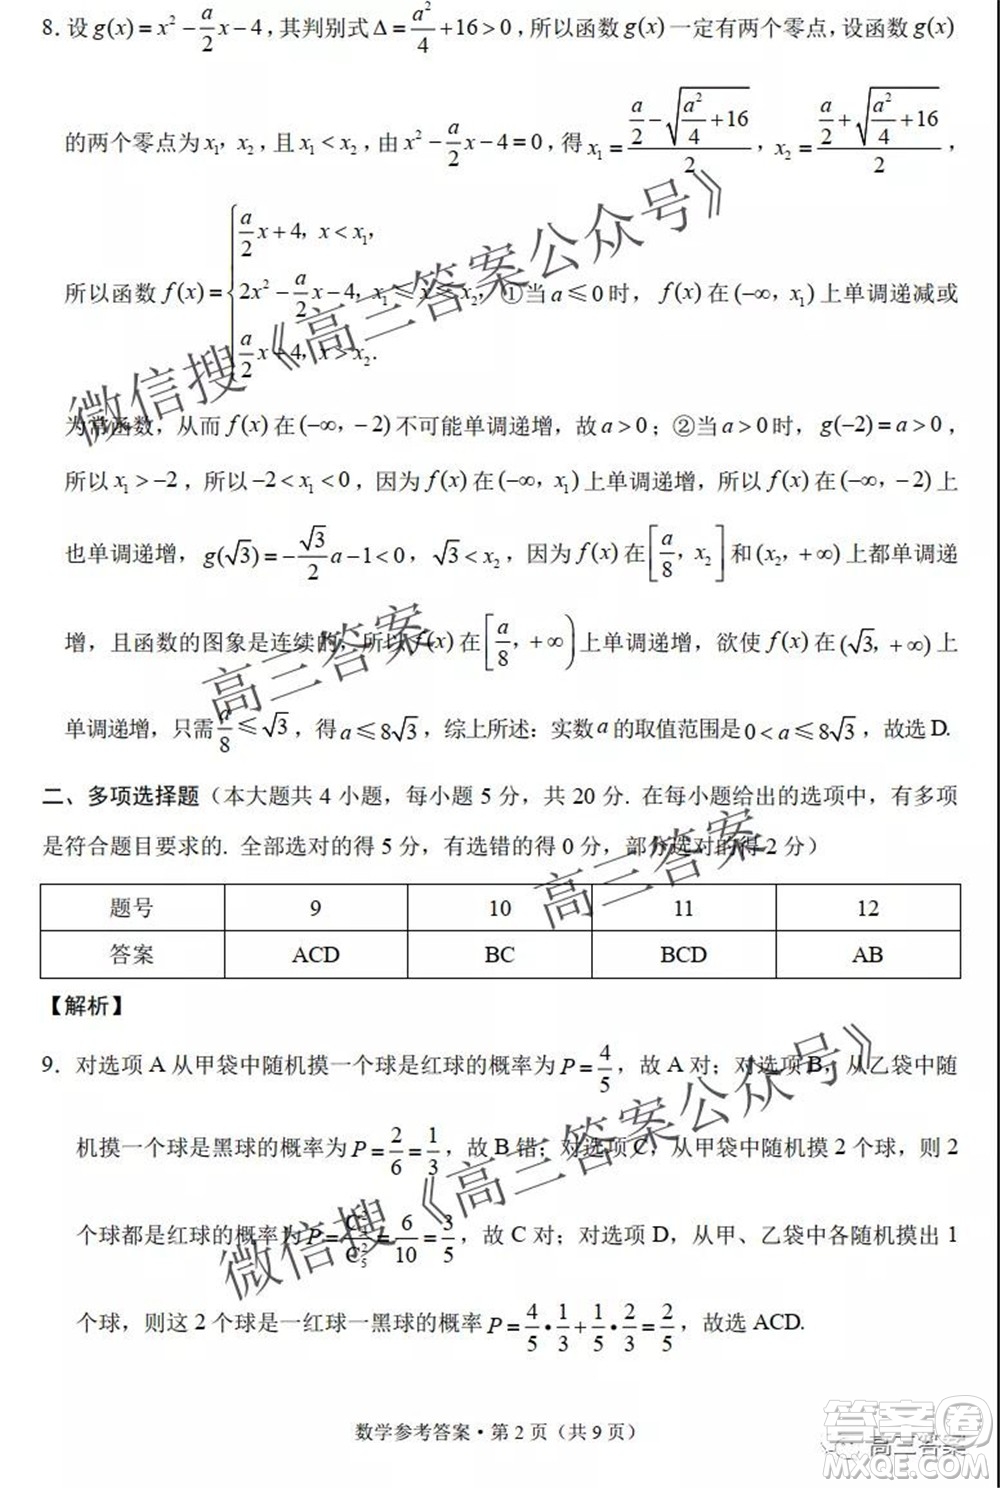 8. 设 g(x)=x²-a/2x-4，其判别式 Δ=a²/4+16>0，所以函数 g(x) 一定有两个零点，设函数 g(x)
的两个零点为 x₁，x₂，且 x₁<x₂，由 x²-a/2x-4=0，得 x₁=(a/2-√(a²/4+16))/2，x₂=(a/2+√(a²/4+16))/2，
所以函数 f(x)={a/2x+4，x<x₁，
2x²-a/2x-4，x₁≤x≤x₂，①当 a≤0 时，f(x) 在 (-∞，x₁) 上单调递减或
a/2x+4，x>x₂.
为常函数，从而 f(x) 在 (-∞，-2) 不可能单调递增，故 a>0；②当 a>0 时，g(-2)=a>0，
所以 x₁>-2，所以 -2<x₁<0，因为 f(x) 在 (-∞，x₁) 上单调递增，所以 f(x) 在 (-∞，-2) 上
也单调递增，g(√3)=-√3/2a-1<0，√3<x₂，因为 f(x) 在 [a/8，x₂] 和 (x₂，+∞) 上都单调递
增，且函数的图象是连续的，所以 f(x) 在 [a/8，+∞) 上单调递增，欲使 f(x) 在 (√3，+∞) 上
单调递增，只需 a/8≤√3，得 a≤8√3，综上所述：实数 a 的取值范围是 0<a≤8√3，故选 D.
二、多项选择题（本大题共 4 小题，每小题 5 分，共 20 分. 在每小题给出的选项中，有多项
是符合题目要求的. 全部选对的得 5 分，有选错的得 0 分，部分选对的得 2 分）
题号 9 10 11 12
答案 ACD BC BCD AB
【解析】
9. 对选项 A 从甲袋中随机摸一个球是红球的概率为 P=4/5，故 A 对；对选项 B，从乙袋中随
机摸一个球是黑球的概率为 P=2/6=1/3，故 B 错；对选项 C，从甲袋中随机摸 2 个球，则 2
个球都是红球的概率为 P=C₄²/C₅²=6/10=3/5，故 C 对；对选项 D，从甲、乙袋中各随机摸出 1
个球，则这 2 个球是一红球一黑球的概率 P=4/5•1/3+1/5•2/3=2/5，故选 ACD.
数学参考答案·第 2 页（共 9 页）
微信搜《高三答案公众号》
高三答案
高三答案
微信搜《高三答案公众号》
高三答案
答案圈
MXQE.COM